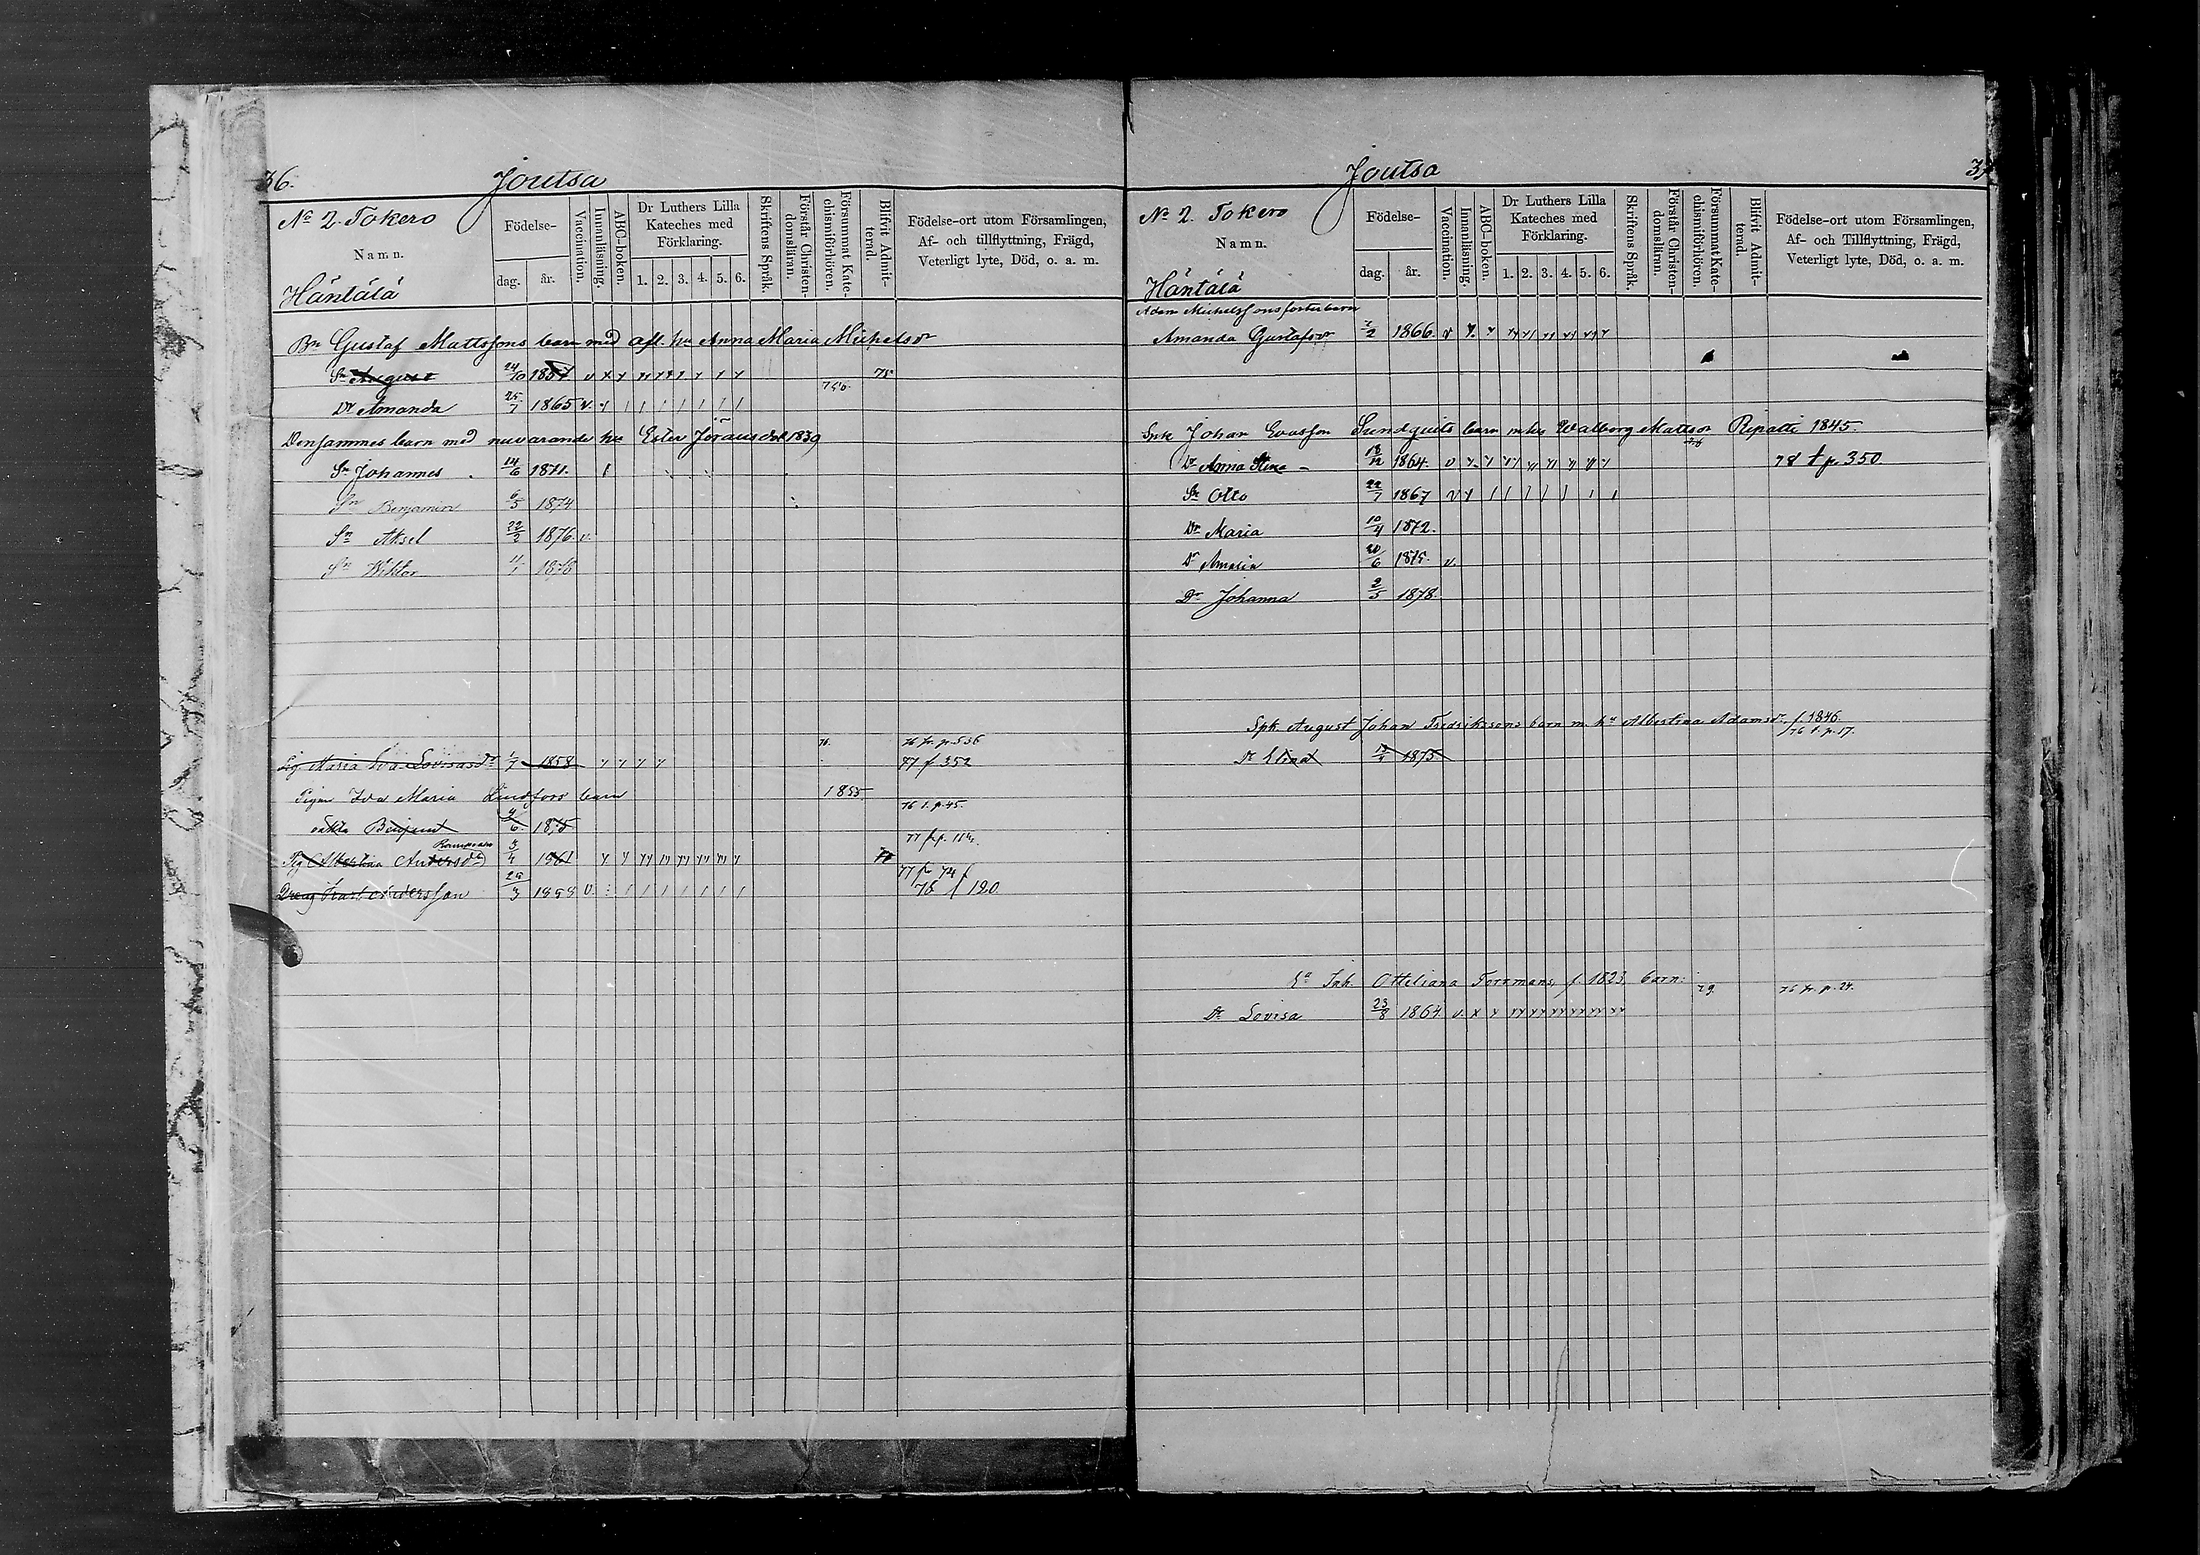 36.
Joutsa
No 2. Tokero
Namn.
Häntälä
Födelse-
dag.
år.
Vaccination.
Innanläsning.
ABC-boken.
Dr Luthers Lilla Kateches med Förklaring.
1. 2. 3. 4. 5. 6.
Skriftens Språk.
Förstår Christendomsläran.
Försummat Katechismiförhören.
Blifvit Admitterad.
Födelse-ort utom Församlingen,
Af- och tillflyttning, Frägd,
Veterligt lyte, Död, o. a. m.
Bn Gustaf Mattssons barn med afl. hu Anna Maria Michelsdr
Sn August 24/10 1857 75
756.
Dr Amanda 25/7 1865
Densammes barn med nuvarande hu Ester Jöransdr 1839
Sn Johannes 14/6 1871.
Sn Benjamin 6/5 1874
Sn Aksel 22/2 1876. v.
Sn Viktor 11/1 1878
76. 76 fr. p. 536
Pig. Maria Eva Lovisasdr 1/7 1858 77 f 352
Pigan Eva Maria Lindfors barn 1855
76 t. p. 45.
oäkta Benjam 6. 1875
77 fr p.
Pig Albertina Andersdr 3/4 1861
77 fr 74
Dreng Karl Andersson 25/3 1858 v. 78 f 120
Joutsa
37
No 2. Tokero
Namn.
Häntälä
Födelse-
dag.
år.
Vaccination.
Innanläsning.
ABC-boken.
Dr Luthers Lilla Kateches med Förklaring.
1. 2. 3. 4. 5. 6.
Skriftens Språk.
Förstår Christendomsläran.
Försummat Katechismiförhören.
Blifvit Admitterad.
Födelse-ort utom Församlingen,
Af- och Tillflyttning, Frägd,
Veterligt lyte, Död, o. a. m.
Adam Michelssons fosterbarn
Amanda Gustafsdr 7/2 1866.
Johan Evasson Sundqvists barn m hu Walborg Mattsdr Ripatti 1845.
Dr Anna Stina 18/12 1864. 78 t p. 350.
Sn Otto 22/7 1867
Dr Maria 10/4 1872.
Dr Amalia 20/6 1875. v.
Dr Johanna 2/5 1878.
Spk. August Johan Fredrikssons barn m. hu Albertina Adamsdr f 1846.
76 t. p. 57.
Dr Elina 1875
Inh. Otteliana Forsmans, f. 1823, barn: 79. 76 fr. p. 24.
Dr Lovisa 23/8 1864 v.